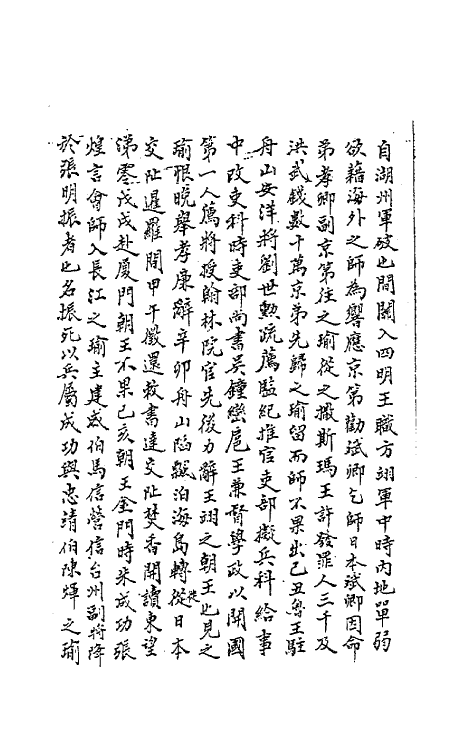 自湖州軍破也間關入四明王職方翊軍中時內地單弱
欲藉海外之師為響應京第勸斌卿乞師日本斌卿因命
弟孝卿副京第往之瑜從之撒斯瑪王許發罪人三千及
洪武錢數十萬京弟先歸之瑜留而師不果出己丑魯王駐
舟山安洋將劉世勳疏薦監紀推官吏部擬兵科給事
中改吏科時吏部尚書吳鍾巒扈王兼督學政以開國
第一人薦將授翰林院官先後力辭王翊之朝王也見之
瑜恨晚舉孝廉辭辛卯舟山陷飄泊海島轉徙日本
交阯暹羅間甲午徵還敕書達交阯焚香開讀東望
涕零戊戌赴厦門朝王不果己亥朝王金門時朱成功張
煌言會師入長江之瑜主建威伯馬信營信台州副將降
於張明振者也名振死以兵屬成功與忠靖伯陳煇之瑜